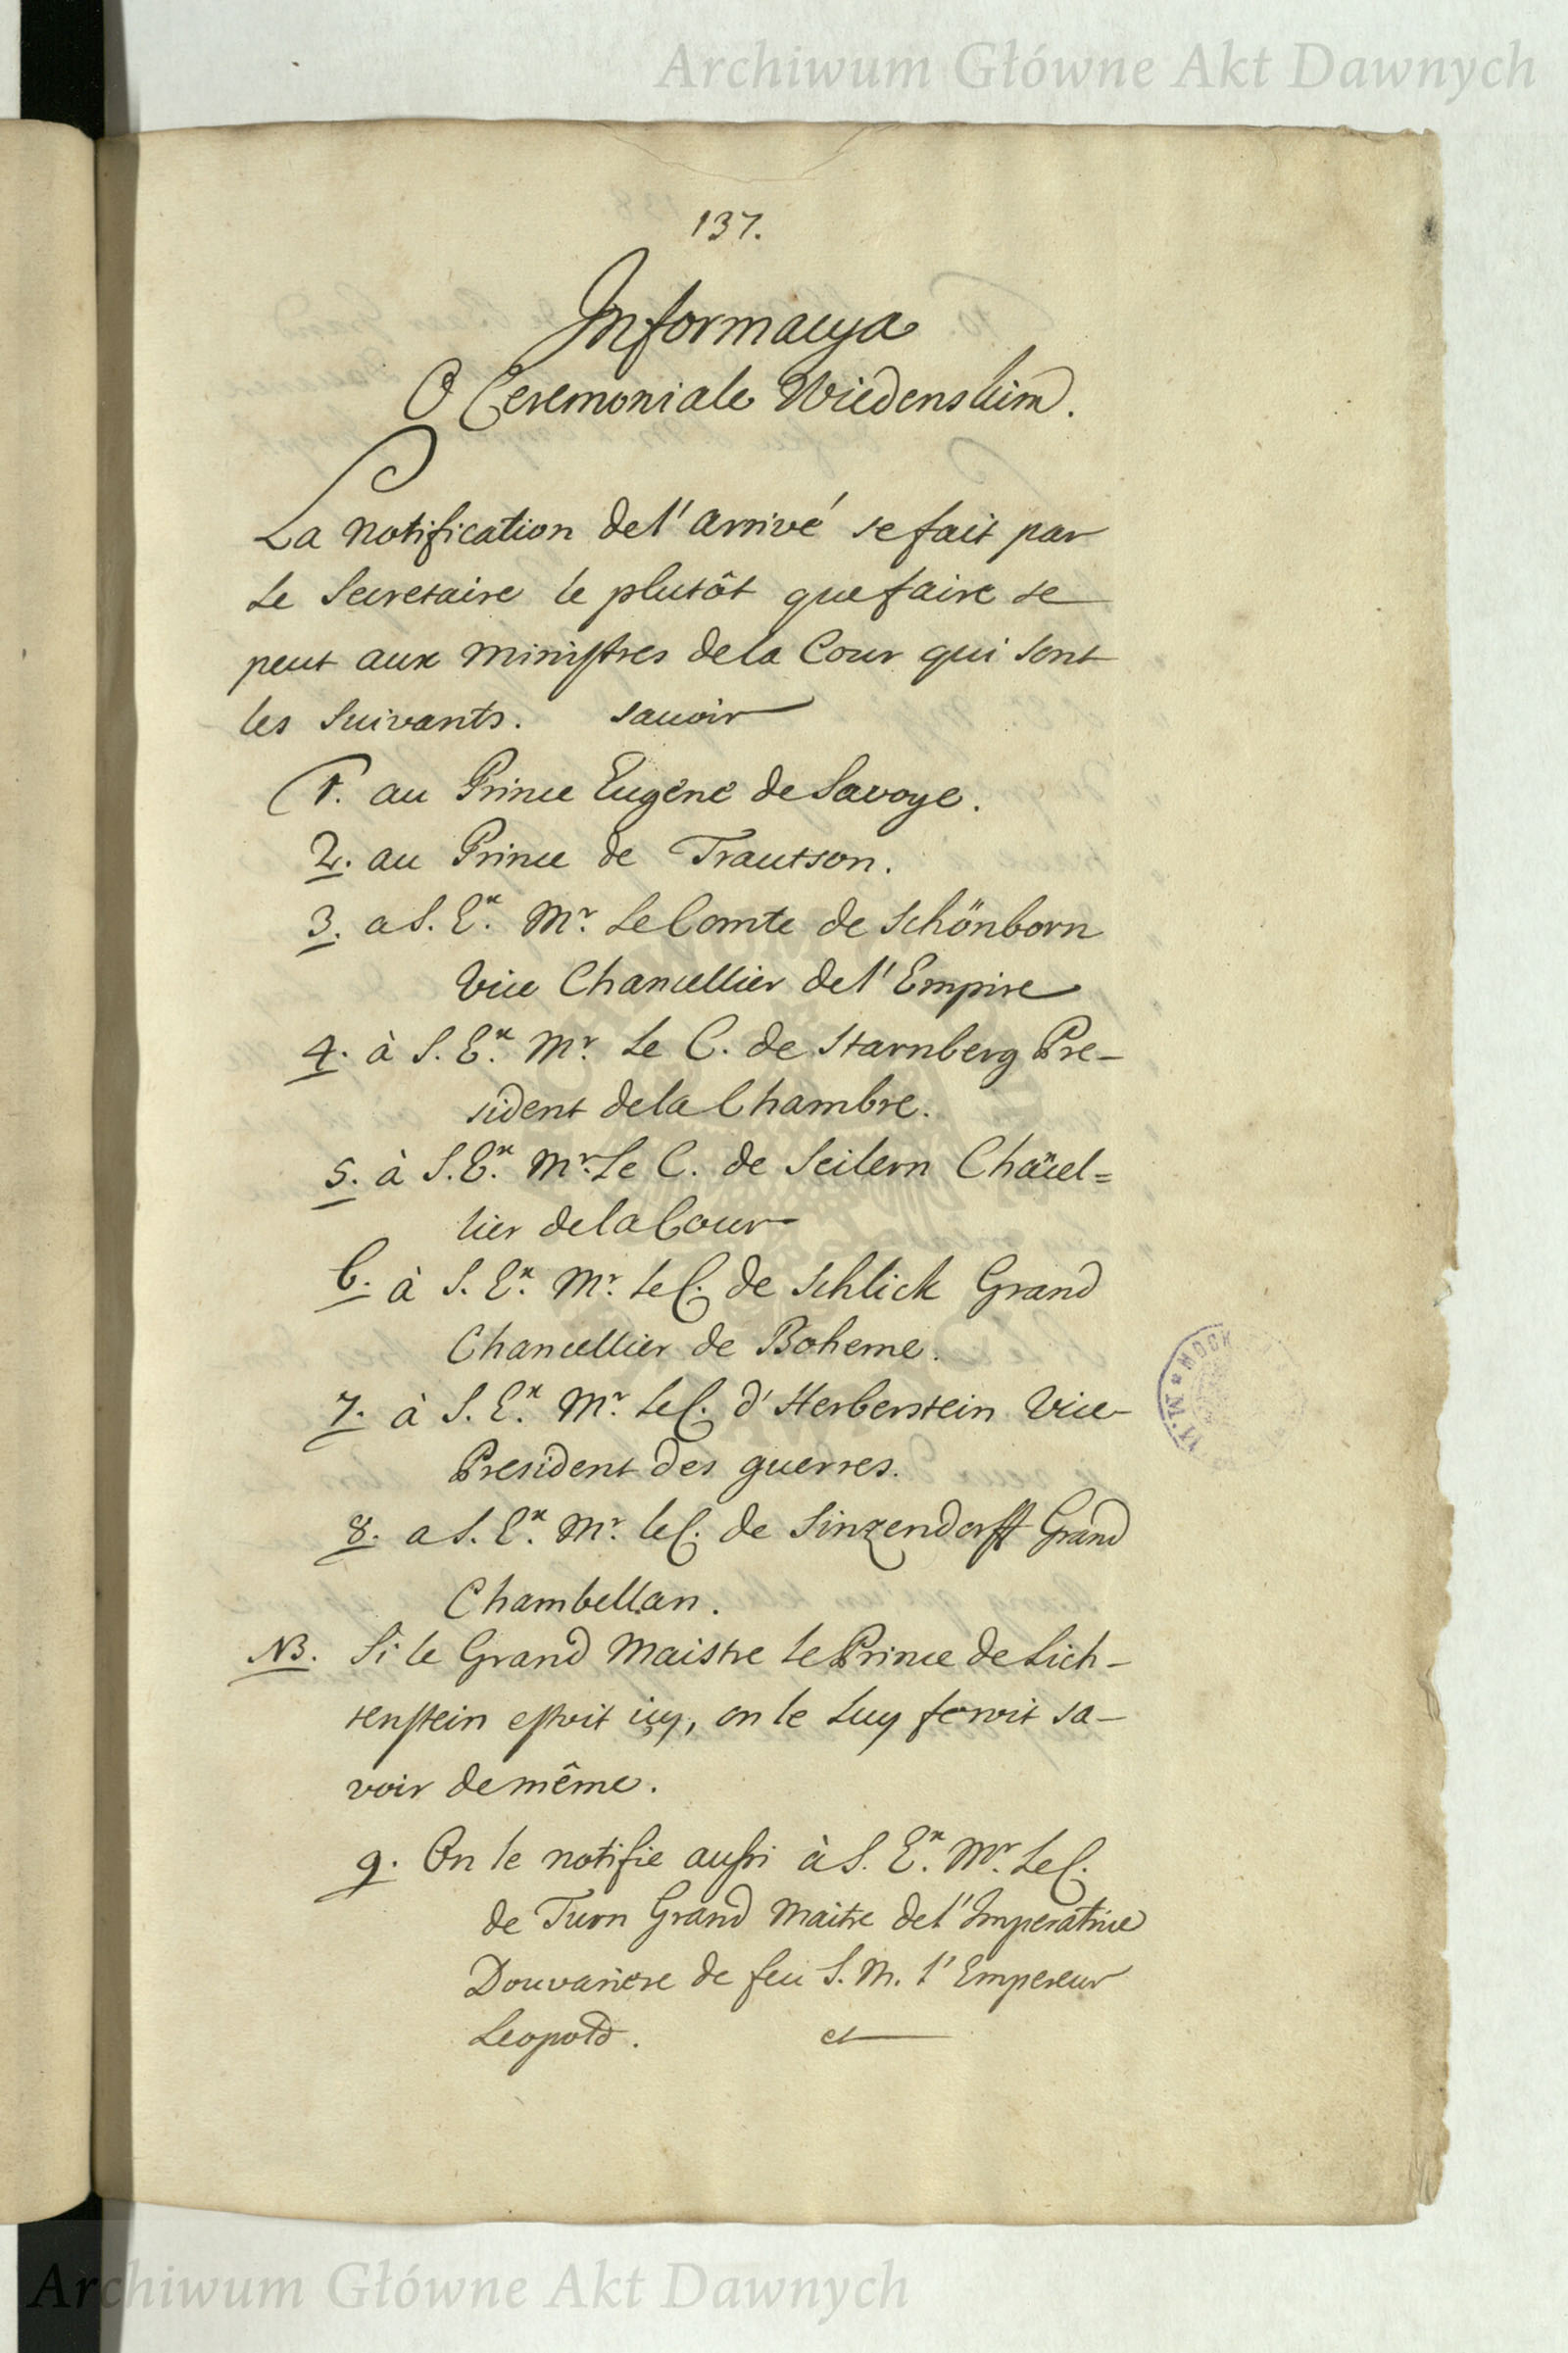 Archiwum Główne Akt Dawnych
137.
Informacya
O Ceremoniale Wiedenskim.
La notification de l'arrivé se fait par
le Secretaire le plutôt que faire se
peut aux ministres de la Cour qui sont
les Suivants. savoir
1. au Prince Eugene de Savoye.
2. au Prince de Trautson.
3. a S. Ex. Mr. Le Comte de Schönborn
Vice Chancellier de l'Empire
4. à S. Ex. Mr. Le C. de Starnberg Pre-
sident de la Chambre.
5. à S. Ex. Mr. Le C. de Seilern Chãcel=
lier de la Cour
6. à S. Ex. Mr. Le C. de Schlick Grand
Chancellier de Boheme.
7. à S. Ex. Mr. Le C. d'Herberstein Vice
President des guerres.
8. a S. Ex. Mr. le C. de Sinzendorff Grand
Chambellan.
NB. Si le Grand Maistre le Prince de Lich-
tenstein estoit icy, on le luy feroit sa-
voir de même.
9. On le notifie aussi à S. Ex. Mr. Le C.
de Turn Grand Maitre de l'Imperatrice
Douvariere de feu S. M. l'Empereur
Leopold. et
Archiwum Główne Akt Dawnych